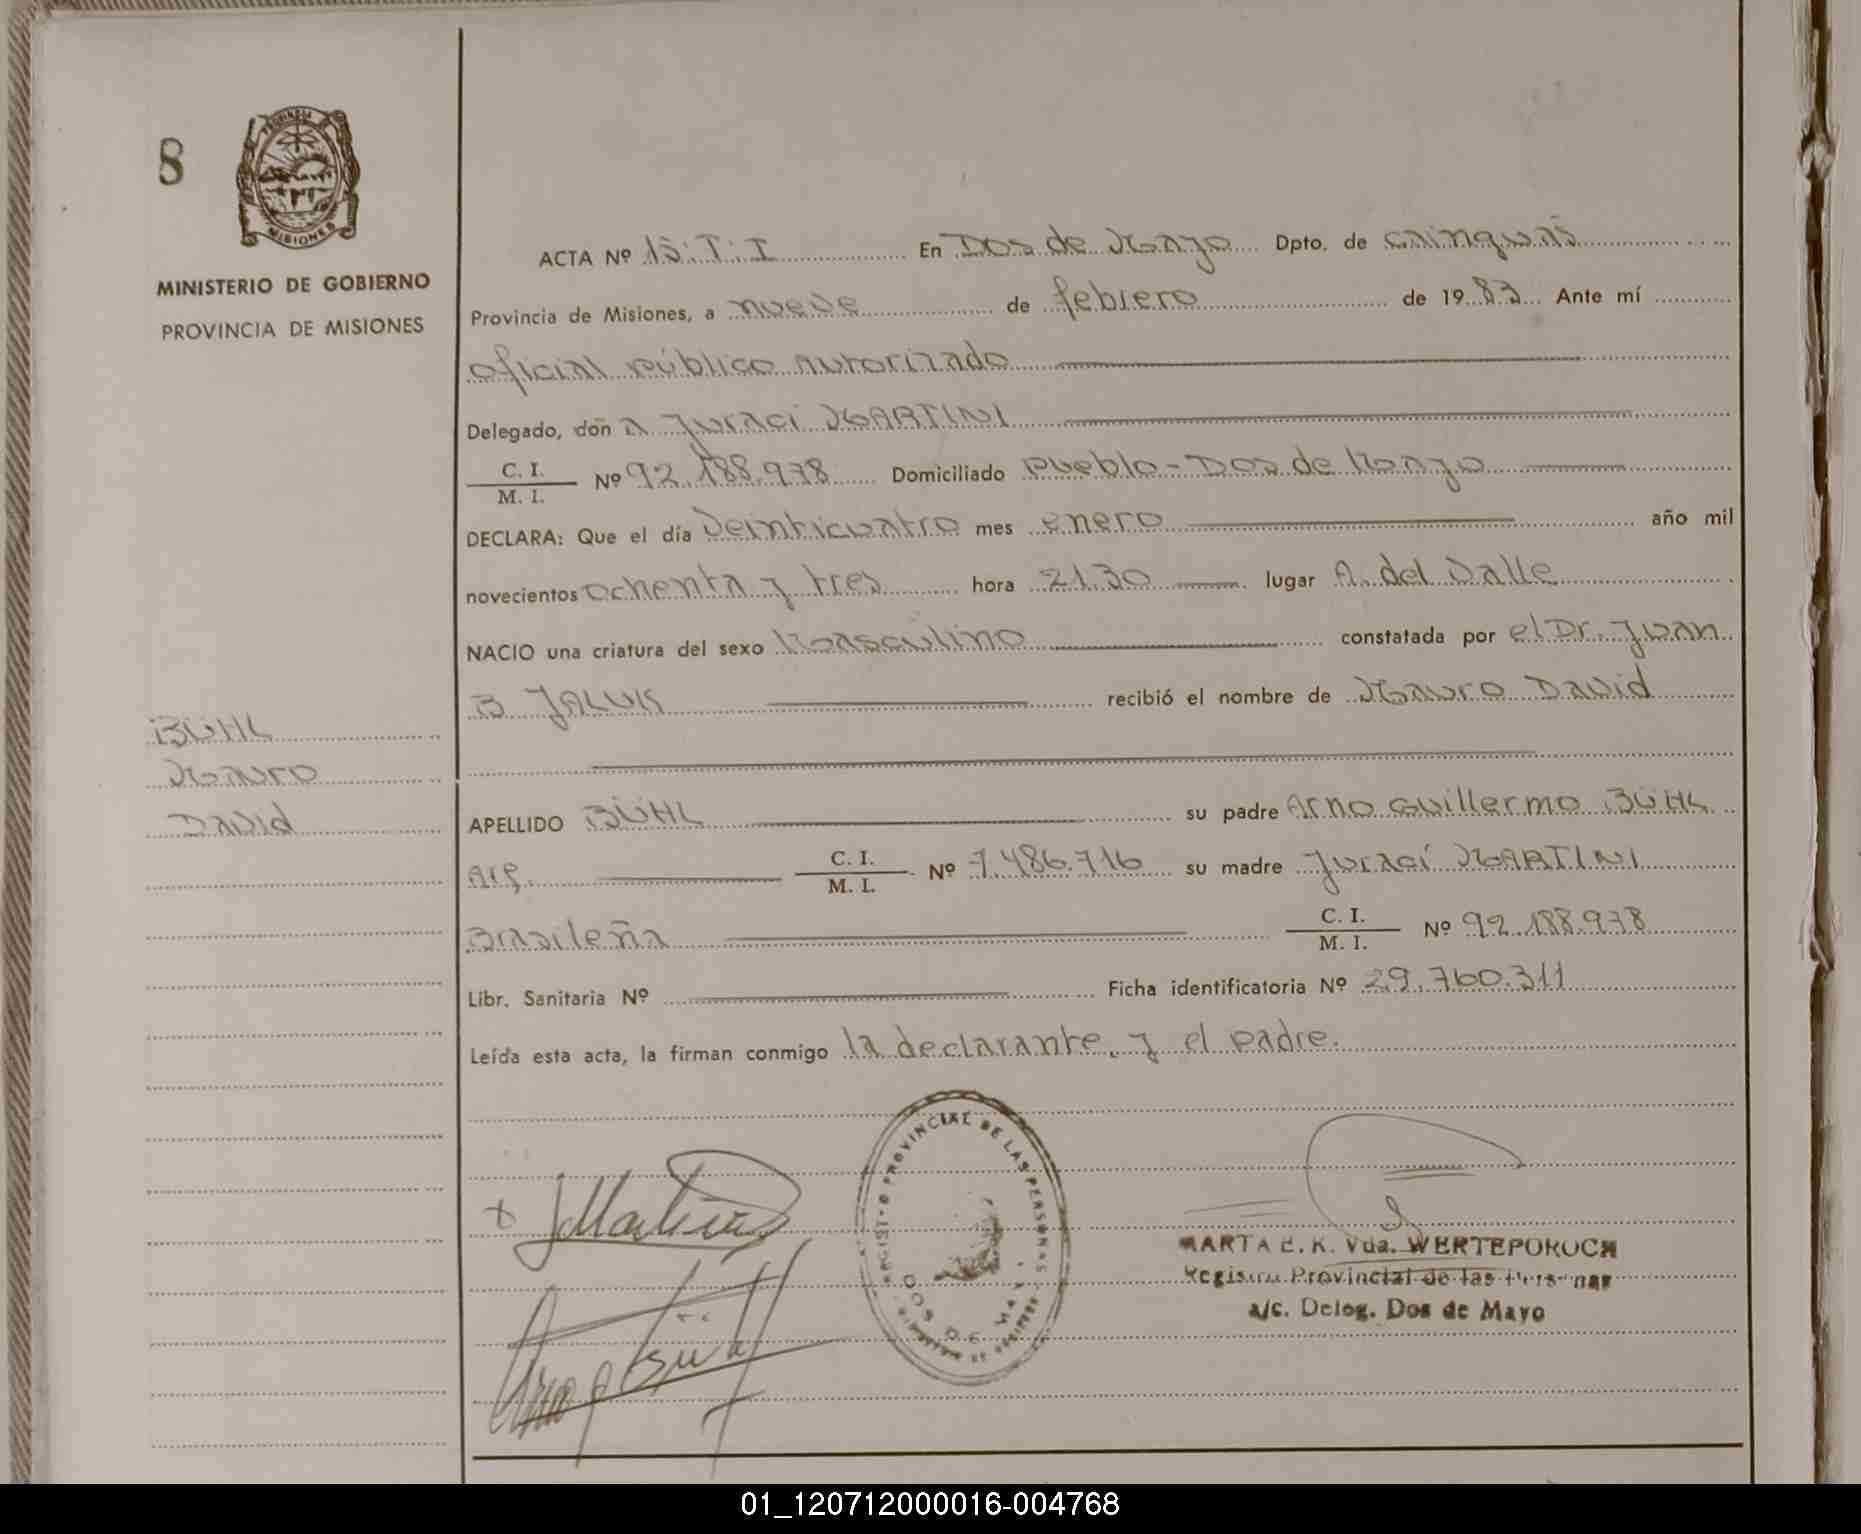 8
PROVINCIA DE
MISIONES
MINISTERIO DE GOBIERNO
PROVINCIA DE MISIONES
ACTA Nº 15.T.I En Dos de Mayo Dpto. de Cainguás
Provincia de Misiones, a nueve de febrero de 1983 Ante mí
oficial público autorizado
Delegado, doña Juraci MARTINI
C. I. / M. I. Nº 92.188.978 Domiciliado Pueblo - Dos de Mayo
DECLARA: Que el día Veinticuatro mes enero año mil
novecientos ochenta y tres hora 21.30 lugar A. del Valle
NACIO una criatura del sexo Masculino constatada por el Dr. Juan
B JALUK recibió el nombre de Mauro David
BÜHL
Mauro
David
APELLIDO BÜHL su padre Arno Guillermo BÜHL
Arg. C. I. / M. I. Nº 7.486.716 su madre Juraci MARTINI
Brasileña C. I. / M. I. Nº 92.188.978
Libr. Sanitaria Nº Ficha identificatoria Nº 29.760.311
Leída esta acta, la firman conmigo la declarante y el padre.
PROVINCIAL DE LAS PERSONAS
DOS DE MAYO
MARTA E. K. Vda. WERTEPOROCH
Registro Provincial de las Personas
a/c. Deleg. Dos de Mayo
01_120712000016-004768